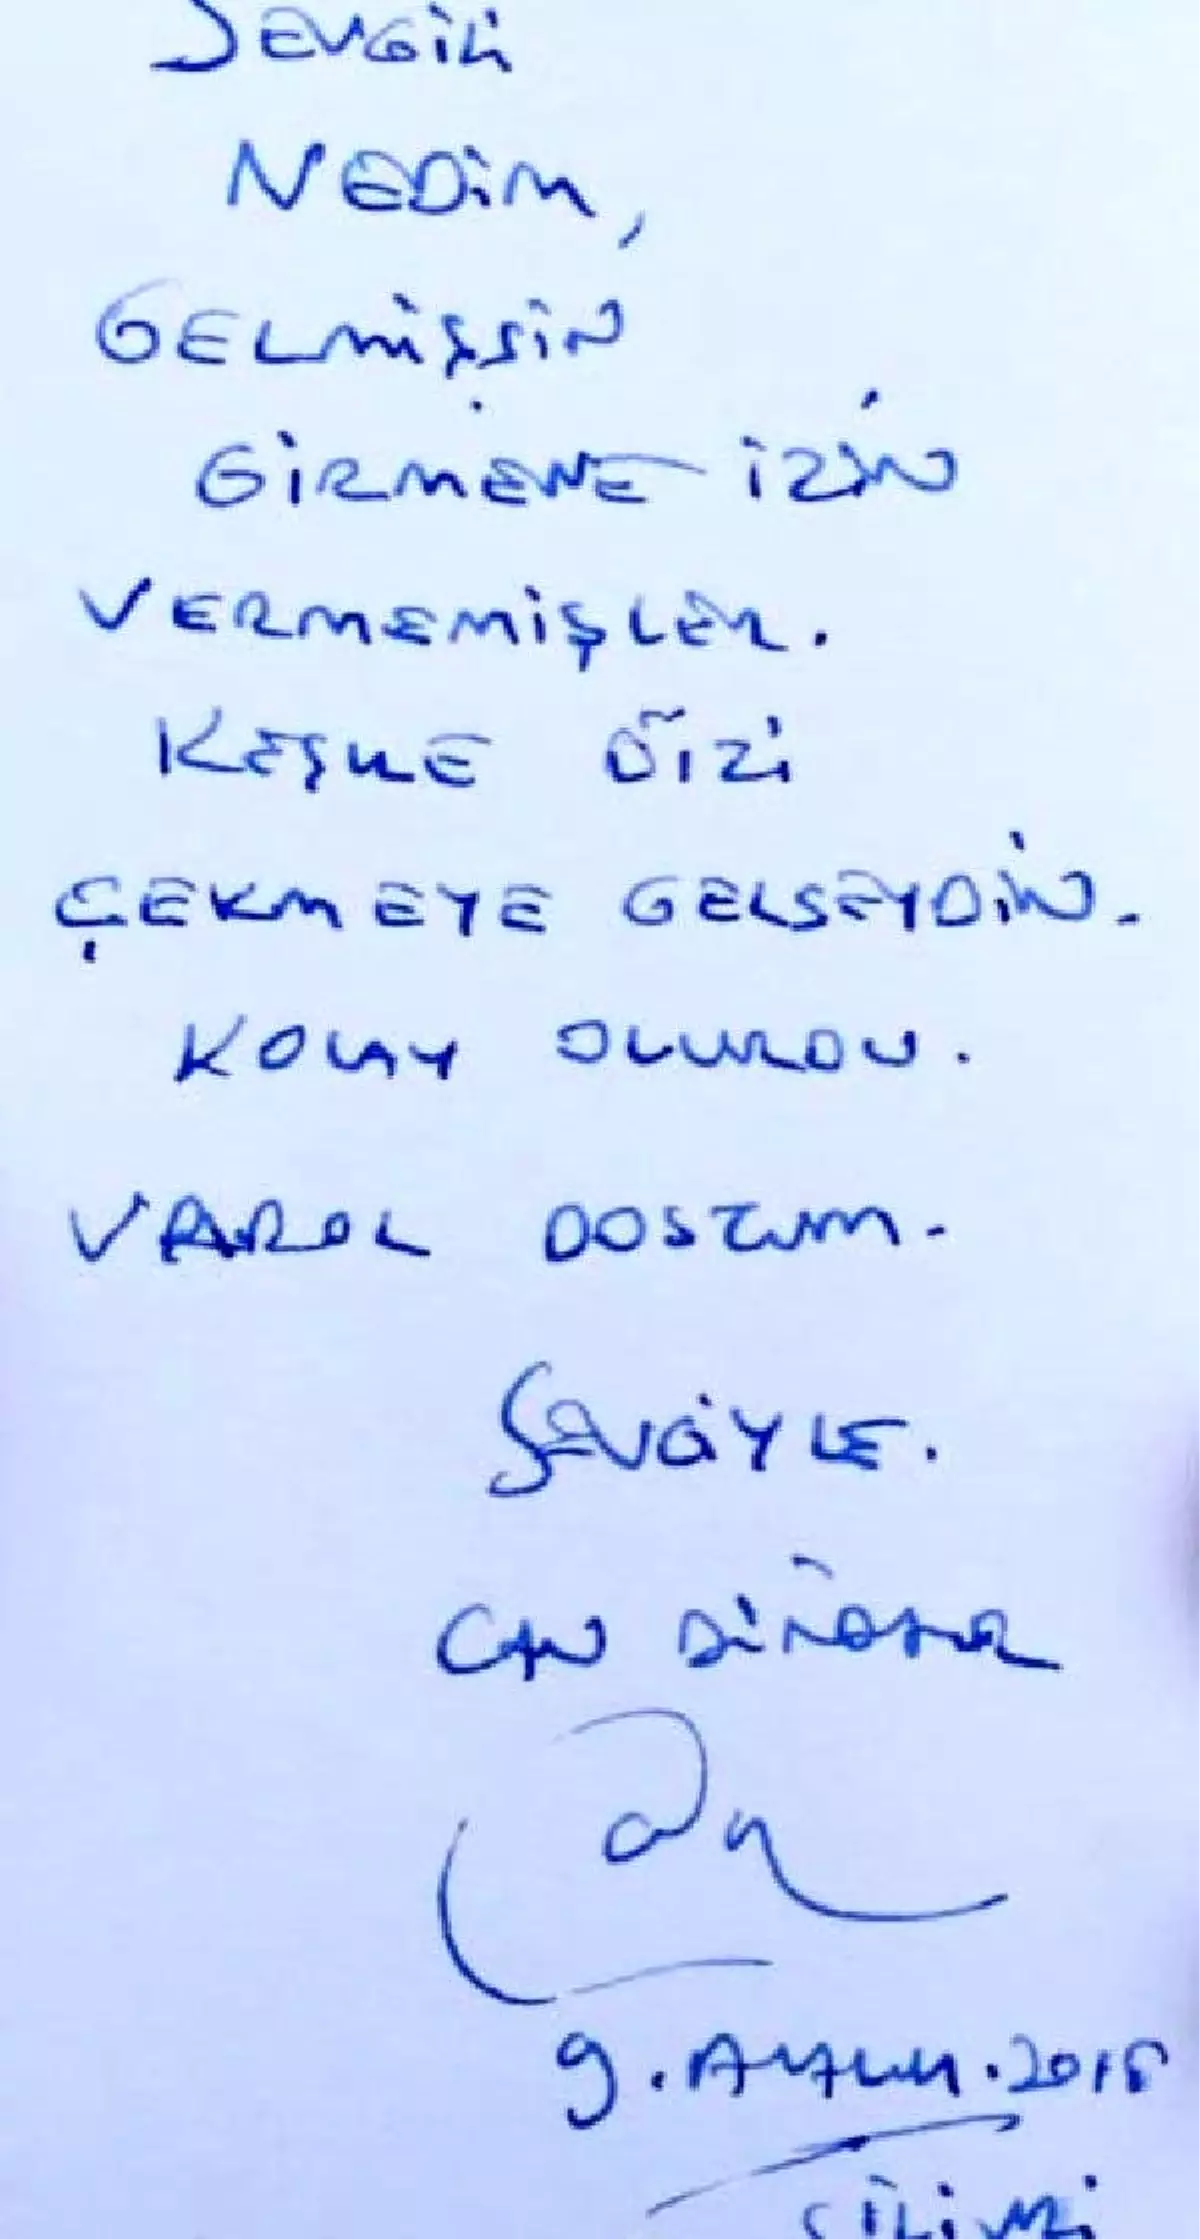 SEVGİLİ
NEDİM,
GELMİŞSİN
GİRMENE İZİN
VERMEMİŞLER.
KEŞKE DİZİ
ÇEKMEYE GELSEYDİN.
KOLAY OLURDU.
VAROL DOSTUM.
SEVGİYLE.
CAN DÜNDAR
9.ARALIK.2015
SİLİVRİ